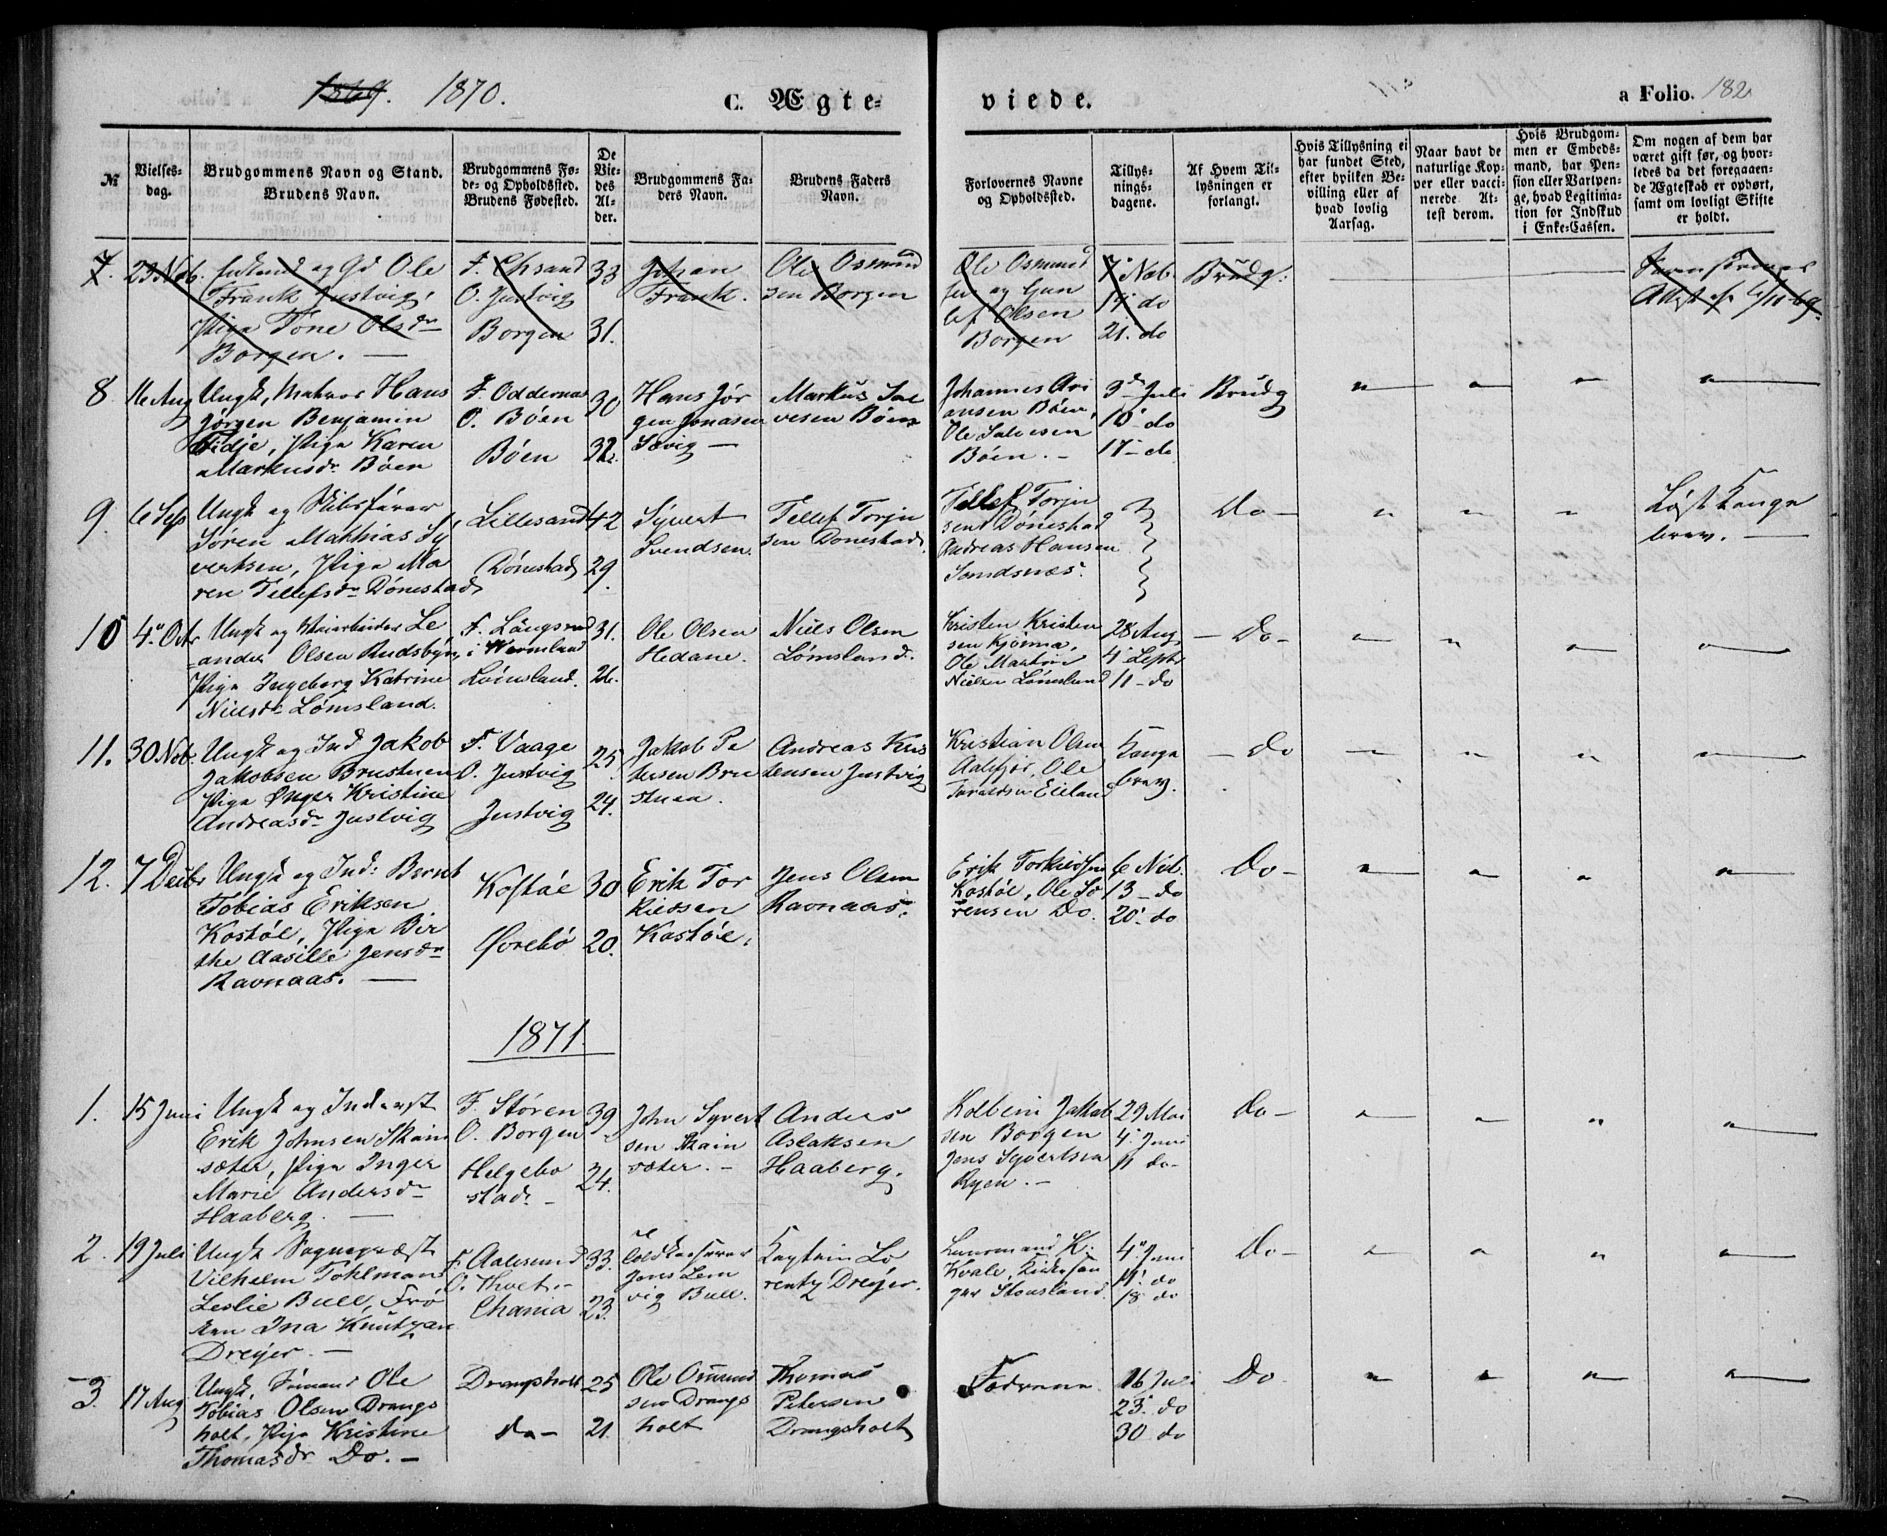 1869. 1870.
C. Ægte-
viede.
a Folio. 182
№
Vielses-
dag.
Brudgommens Navn og Stand.
Brudens Navn.
Brudgommens Fø-
de- og Opholdssted.
Brudens Fødested.
De
Vie-
des
Al-
der.
Brudgommens Fa-
ders Navn.
Brudens Faders
Navn.
Forlovernes Navne
og Opholdssted.
Tillys-
nings-
dagene.
Af Hvem Til-
lysningen er
forlangt.
Hvis Tillysning ei
har fundet Sted,
efter hvilken Be-
villing eller af
hvad lovlig
Aarsag.
Naar havt de
naturlige Kop-
per eller vacci-
nerede At-
test derom.
Hvis Brudgom-
men er Embeds-
mand, har Pen-
sion eller Vartpen-
ge, hvad Legitima-
tion for Indskud
i Enke-Cassen.
Om nogen af dem har
været gift før, og hvor-
ledes da det foregaaen-
de Ægteskab er ophørt,
samt om lovligt Skifte
er holdt.
7. 23 Nob.
Ole
Frank Justvig,
Piga Tone Olsdr
Borgen. —
F. Chrsand
O. Justvig
Borgen
33
31.
Johan
Frank.
Ole Osmund
sen Borgen
Ole Osmund
sen og Gun
Olsen
Borgen
7 Nob
14 do
21. do
Brudg.
8. 11 Aug
Ungk, Matros Hans
Jørgen Benjamin
Tidje, Piga Karen
Markusdr Bóen
F. Oddernæs
O. Bóen
Bóen
30
32.
Hans Jør
gen Jonasen
Savig —
Markus Sal
vesen Bóen
Johannes Ari
ansen Bóen,
Ole Salvesen
Bóen. —
3d Juli
10 do
17 — do
Brudg
9. 6 Sep
Ungk og Skibsfører
Søren Mathias Sy
vertsen, Piga Ma
ren Tellefsdr Dónestad
Lillesand
Dónestad
42
29.
Syvert
Svendsen.
Tellef Torju
sen Donestad.
Tellef Torju
sen Dónestad
Andreas Hansen
Do —
Løst Konge
brev. —
10 4' Octr
Ungk og Le
ander Olsen Rudsbyn,
Piga Ingeborg Katrine
Nielsdr Lómsland.
i Wermland
Lómsland.
31.
26.
Ole Olsen
Hedane.
Niels Olsen
Lómsland.
Kristen Kristen
sen
Ole Martin
Nielsen Lómsland
28 Aug
4 Septr
11 — do
— Do —
11. 30 Nob.
Ungk og Ind Jakob
Jakobsen Brustuen
Piga Inger Kristine
Andreasdr Justvig
F. Vaage
O. Justvig
Justvig
25
24.
Jakob Pe
dersen Bru
stuen.
Andreas Kris
tensen Justvig
Kristian Olsen
Ole
Eieland
Konge
brev.
— Do
12. 7 Decbr
Ungk og Ind: Bernt
Tobias Eriksen
Kostóe, Piga Bir
the Aasille Jensdr
Ravnaas. —
Kostóe
Øvrebó
30
20.
Erik Tor
kieldsen
Kostóe.
Jens Olsen
Ravnaas.
Erik Torkieldsen
Kostóe, Ole Sø
rensen Do.
6 Nob.
13 — do
20' do
Do —
1871.
1. 15 Juni
Ungk og Inderst
Erik Johnsen Skain
sæter, Piga Inger
Marie Andersdr
Haaberg. —
F. Støren
O. Borgen
Helgebo
stad. —
39
24.
John Syvert
sen Skain
sæter. —
Anders
Aslaksen
Haaberg.
Kolbein Jakob
sen Borgen
Jens Syvertsen
Ryen. —
29 Mai
4' Juni
11 do —
Do —
2. 19 Juli
Ungk Sognepræst
Vilhelm Tohlman
Leslie Bull, Frø
ken Ina Knutzen
Dreyer. —
F. Aalesund
O. —
Chania
33.
23.
Jens Lem
vig Bull.
Kaptain Lo
rentz Dreyer.
Lensmand K.
Kvale, Kirkesan
ger Stousland.
4' Juni
11' do
18 do
Do —
3. 17 Aug
Ungk, Sømand Ole
Tobias Olsen Drangs
holt, Piga Kristine
Thomasdr Do. —
Drangsholt
do —
25
21.
Ole Osmund
sen Drangs
holt
Thomas
Petersen
Drangsholt
Fædrene.
16 Juli
23' do
30 do
Do